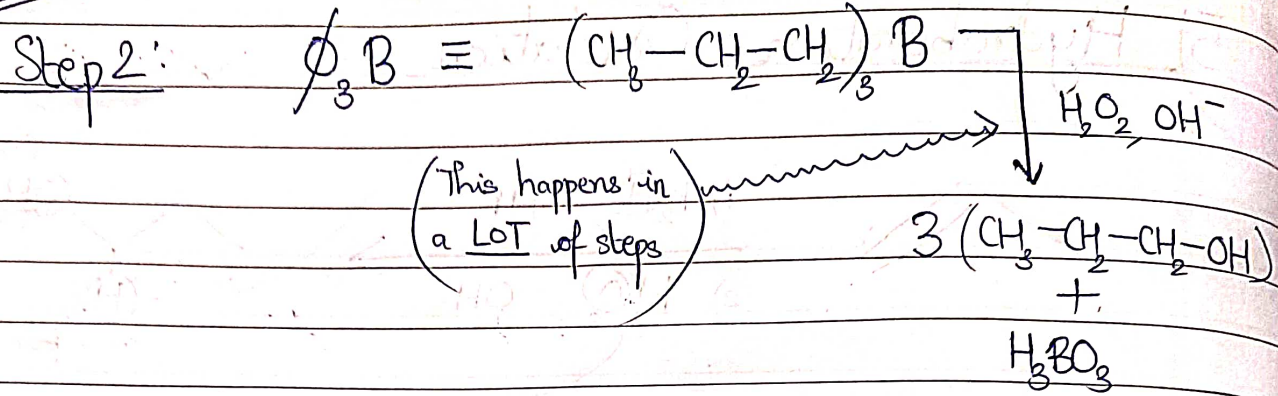 Step 2: ϕ₃B ≡ (CH₃–CH₂–CH₂)₃ B
H₂O₂, OH⁻
(This happens in
a LOT of steps)
3 (CH₃–CH₂–CH₂–OH)
+
H₃BO₃